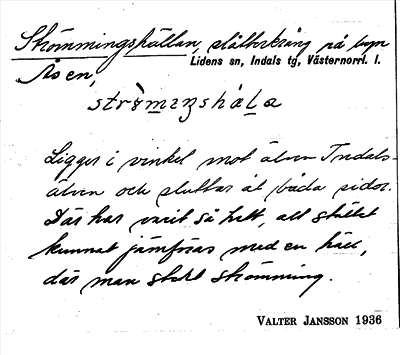 Strömmingshällan, slåtterkrång på byn
Åsen, Lidens sn, Indals tg, Västernorrl. l.
Ligger i vinkel mot älven Indals-
älven och sluttar åt båda sidor.
Där har varit så hett, att stället
kunnat jämföras med en häll,
där man stekt strömming.
VALTER JANSSON 1936